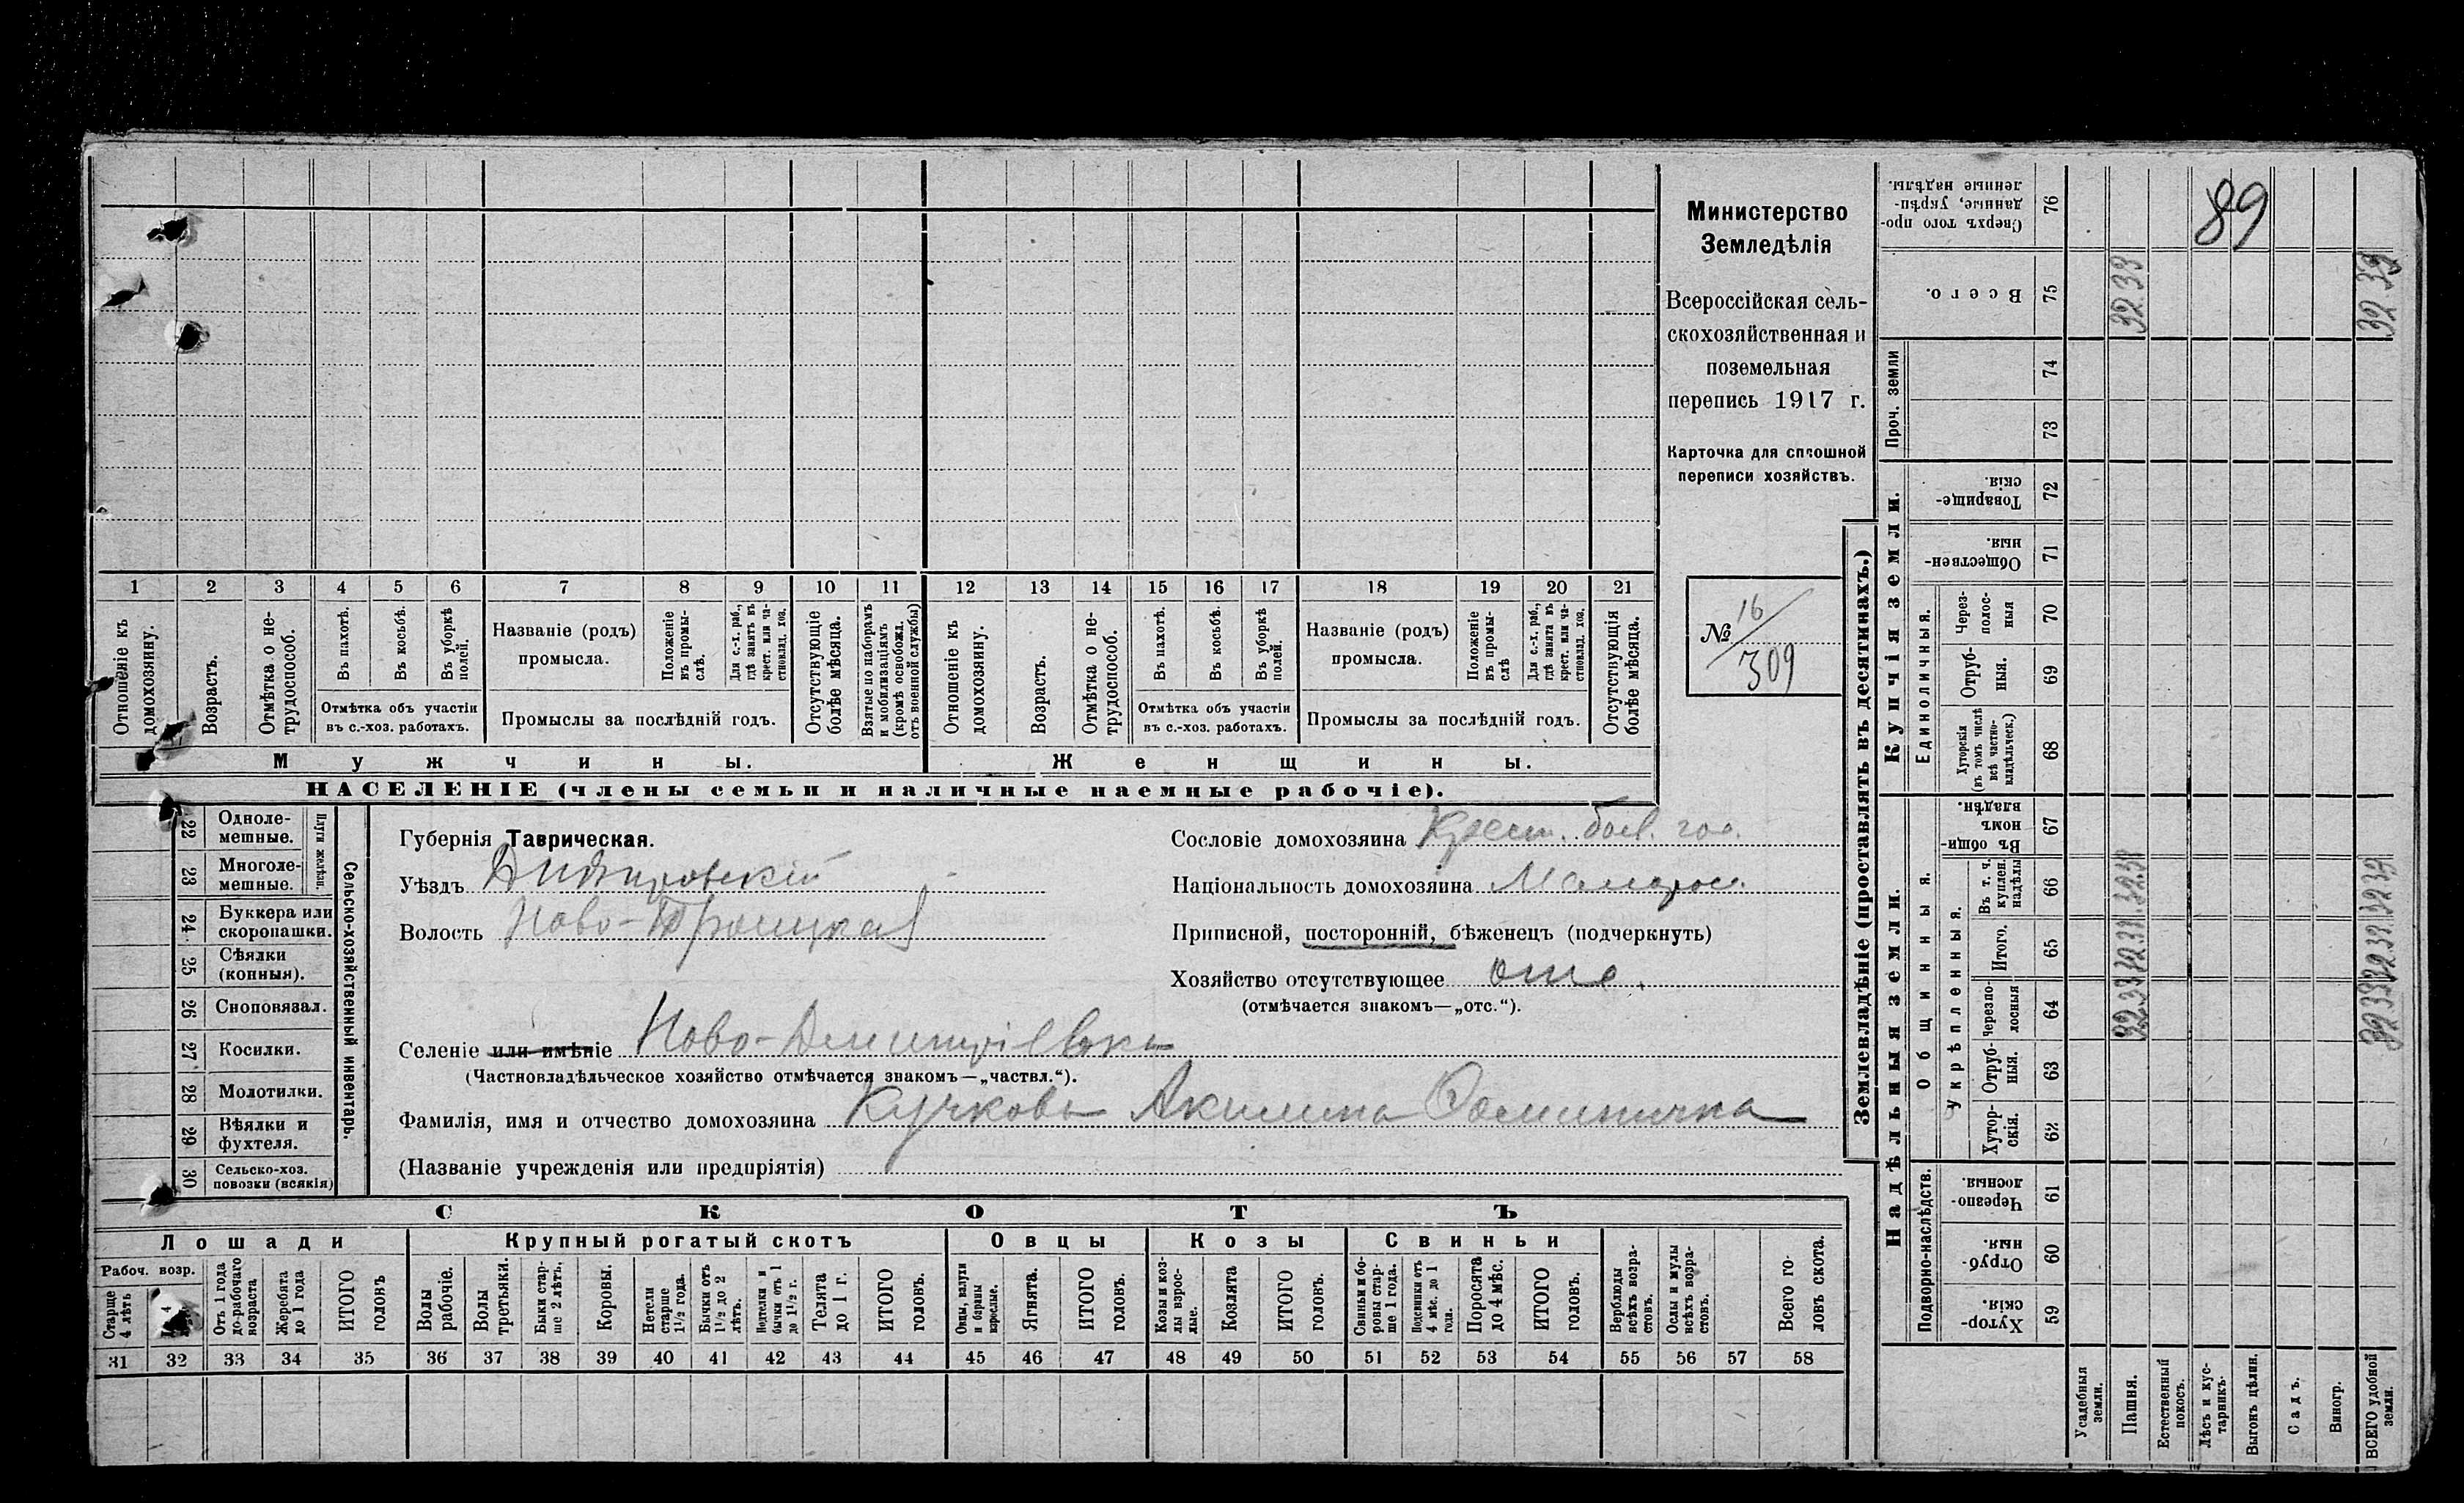 Министерство
Земледѣлія
Всероссійская сель-
скохозяйственная и
поземельная
перепись 1917 г.
Карточка для сплошной
переписи хозяйствъ.
№ 16/309
89
1 2 3 4 5 6 7 8 9 10 11 12 13 14 15 16 17 18 19 20 21
Отношеніе къ домохозяину.
Возрастъ.
Отмѣтка о не-трудоспособ.
Въ пахотѣ.
Въ косьбѣ.
Въ уборкѣ полей.
Отмѣтка объ участіи
въ с.-хоз. работахъ.
Названіе (родъ)
промысла.
Положеніе въ промы-слѣ.
Для с.-х. раб., гдѣ занятъ въ крест. или ча-стновлад. хоз.
Промыслы за послѣдній годъ.
Отсутствующіе болѣе мѣсяца.
Взятые по наборамъ и мобилизаціямъ (кромѣ освобожд. отъ военной службы)
Отношеніе къ домохозяину.
Возрастъ.
Отмѣтка о не-трудоспособ.
Въ пахотѣ.
Въ косьбѣ.
Въ уборкѣ полей.
Отмѣтка объ участіи
въ с.-хоз. работахъ.
Названіе (родъ)
промысла.
Положеніе въ промы-слѣ
Для с.-х. раб., гдѣ занята въ крест. или ча-стновлад. хоз.
Промыслы за послѣдній годъ.
Отсутствующія болѣе мѣсяца.
Мужчины.
Женщины.
НАСЕЛЕНІЕ (члены семьи и наличные наемные рабочіе).
22 Однолемешные.
23 Многолемешные.
Плуги желѣзн.
24 Буккера или скоропашки.
25 Сѣялки (конныя).
26 Сноповязал.
27 Косилки.
28 Молотилки.
29 Вѣялки и фухтеля.
30 Сельско-хоз. повозки (всякія)
Сельско-хозяйственный инвентарь.
Губернія Таврическая.
Уѣздъ Днѣпровскій
Волость Ново-Троицкая
Сословіе домохозяина Крест. гос.
Національность домохозяина Малорос.
Приписной, посторонній, бѣженецъ (подчеркнуть)
Хозяйство отсутствующее отс.
(отмѣчается знакомъ—„отс.“).
Селеніе или имѣніе Ново-Дмитріевка
(Частновладѣльческое хозяйство отмѣчается знакомъ—„частвл.“).
Фамилія, имя и отчество домохозяина Кучкова Акилина
(Названіе учрежденія или предпріятія)
СКОТЪ
Лошади
Крупный рогатый скотъ
Овцы
Козы
Свиньи
Рабоч. возр.
Старше 4 лѣтъ
4
Отъ 1 года до рабочаго возраста
Жеребята до 1 года
ИТОГО головъ
Волы рабочіе.
Волы третьяки.
Быки стар-ше 2 лѣтъ.
Коровы.
Нетели старше 1½ года.
Бычки отъ 1½ до 2 лѣтъ.
Нетелки и бычки отъ 1 до 1½ г.
Телята до 1 г.
ИТОГО головъ.
Овцы, валухи и бараны взрослые.
Ягнята.
ИТОГО головъ.
Козы и коз-лы взрос-лые.
Козлята
ИТОГО головъ.
Свиньи и бо-ровы стар-ше 1 года.
Подсвинки отъ 4 мѣс. до 1 года.
Поросята до 4 мѣс.
ИТОГО головъ.
Верблюды всѣхъ возра-стовъ.
Ослы и мулы всѣхъ возра-стовъ.
Всего го-ловъ скота.
31 32 33 34 35 36 37 38 39 40 41 42 43 44 45 46 47 48 49 50 51 52 53 54 55 56 57 58
Землевладѣніе (проставлять въ десятинахъ.)
Сверхъ того про-данные, укрѣп-ленные надѣлы. 76
Всего. 75 32 33 32 33
Проч. земли 74 73
Купчія земли.
Товарище-скія. 72
Обществен-ныя. 71
Единоличныя.
Через-полос-ныя 70
Отруб-ныя. 69
Хуторскія (въ томъ числѣ всѣ частно-владѣльческ.) 68
Надѣльныя земли.
Общинныя.
Въ общи-номъ владѣн. 67
Укрѣпленныя.
Въ т. ч. куплен. надѣлы 66
Итого. 65
Черезпо-лосныя 64
Отруб-ныя. 63
Хутор-скія. 62
Подворно-наслѣдств.
Черезпо-лосныя. 61
Отруб-ныя. 60
Хутор-скія. 59
Усадебныя земли.
Пашня.
Естественный покосъ.
Лѣсъ и кус-тарникъ.
Выгонъ цѣлин.
Садъ.
Виногр.
ВСЕГО удобной земли.